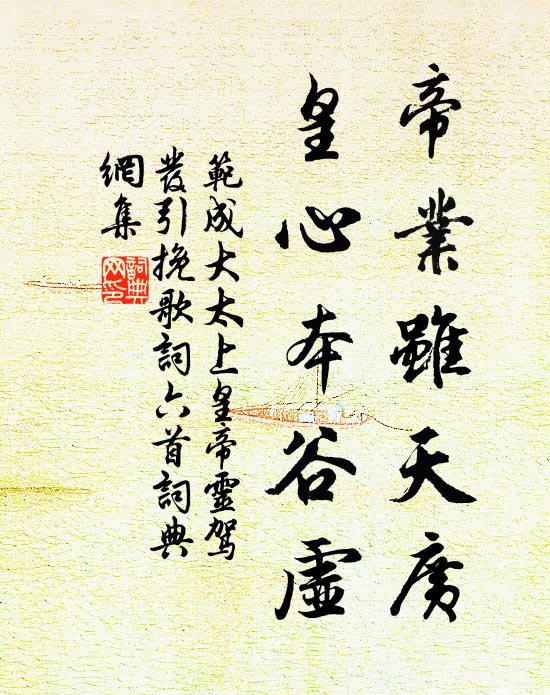 帝業雖天廣
皇心本谷虛
範成大太上皇帝靈駕
發引挽歌詞六首詞典
網集
詞典
网氏